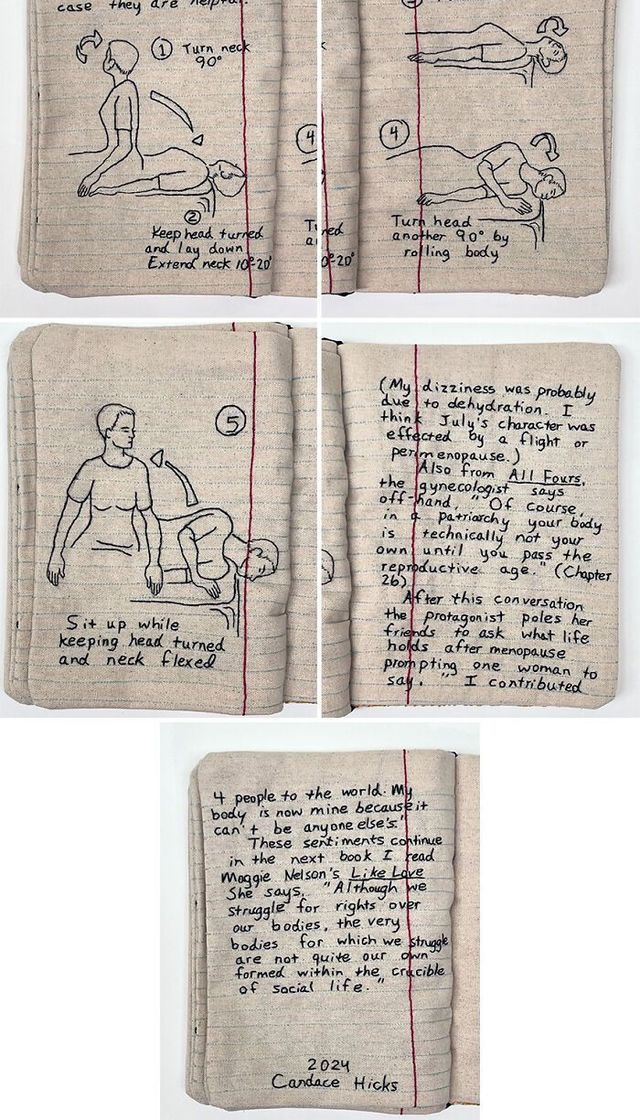 case they are helpful.
① Turn neck
90°
②
Keep head turned
and lay down
Extend neck 10°-20°
④
④
Turn head
another 90° by
rolling body
⑤
Sit up while
keeping head turned
and neck flexed
(My dizziness was probably
due to dehydration. I
think July's character was
effected by a flight or
perimenopause.)
Also from All Fours,
the gynecologist says
off-hand, "Of course,
in a patriarchy your body
is technically not your
own until you pass the
reproductive age." (Chapter
26).
After this conversation
the protagonist poles her
friends to ask what life
holds after menopause
prompting one woman to
say, "I contributed
4 people to the world. My
body is now mine because it
can't be anyone else's."
These sentiments continue
in the next book I read
Maggie Nelson's Like Love
She says, "Although we
struggle for rights over
our bodies, the very
bodies for which we struggle
are not quite our own
formed within the crucible
of social life."
2024
Candace Hicks